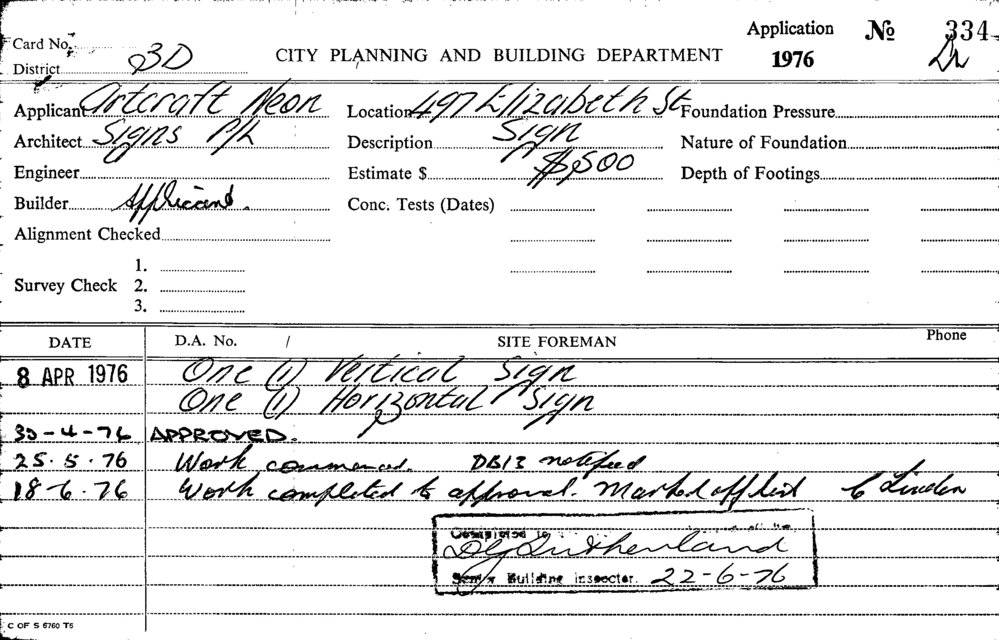 Card No. Application No 334
District 3D CITY PLANNING AND BUILDING DEPARTMENT 1976
Applicant Artcraft Neon Location 497 Elizabeth St Foundation Pressure
Architect Signs P/L Description Sign Nature of Foundation
Engineer Estimate $ $500 Depth of Footings
Builder Applicant. Conc. Tests (Dates)
Alignment Checked
1.
Survey Check 2.
3.
DATE D.A. No. / SITE FOREMAN Phone
8 APR 1976 One (1) Vertical Sign
One (1) Horizontal Sign
30-4-76 APPROVED.
25.5.76 Work commenced. DB13 notified
18-6-76 Work completed to approval. Marked off list
Completed to
Sutherland
Senior Building Inspector. 22-6-76
C OF S 6760 T5